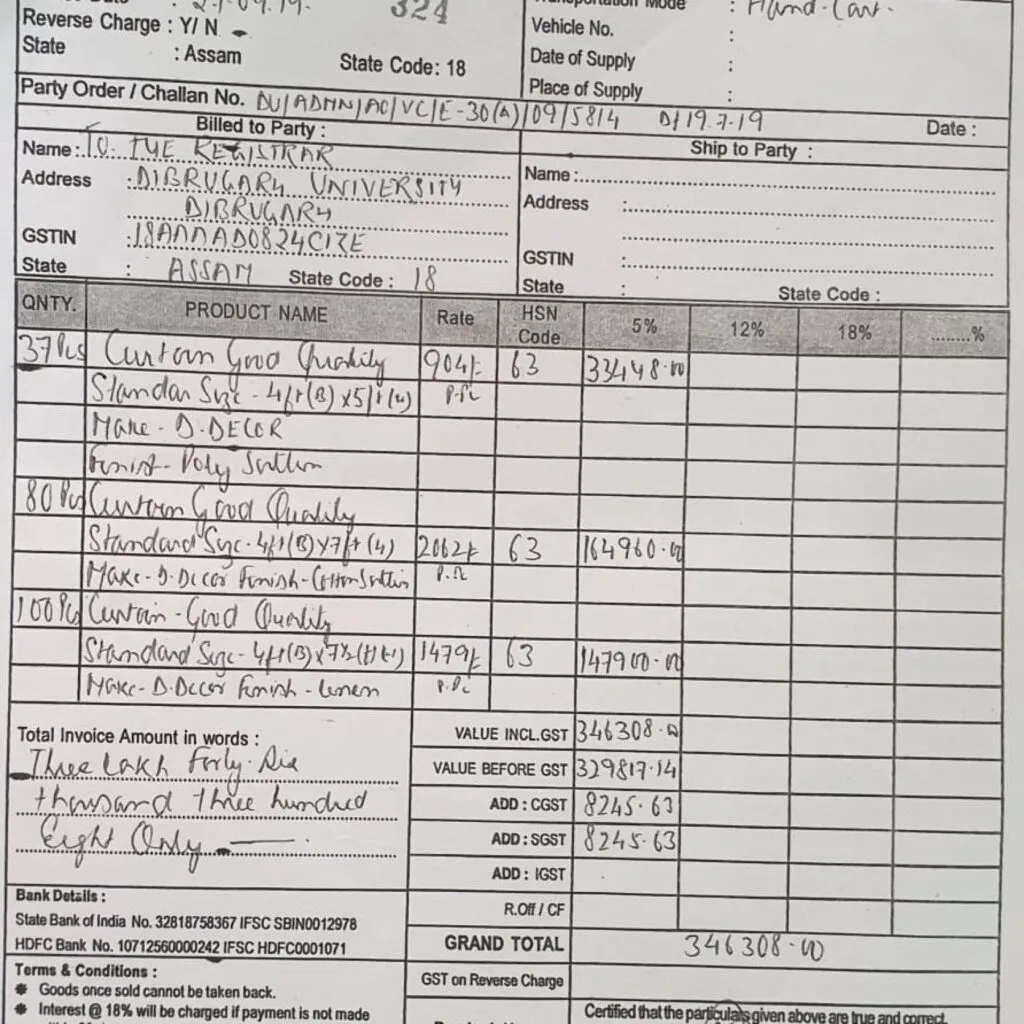 324
Hand-Cart.
Reverse Charge : Y/ N
Vehicle No. :
State : Assam State Code: 18
Date of Supply :
Place of Supply :
Party Order / Challan No. DU/ADMN/AC/VC/E-30(A)/09/5814 Dt 19.7.19 Date :
Billed to Party :
Ship to Party :
Name : To. THE REGISTRAR
Name :
Address : DIBRUGARH UNIVERSITY
Address :
DIBRUGARH
GSTIN : 18AAAAD0824C1ZE
GSTIN :
State : ASSAM State Code : 18
State : State Code :
QNTY. PRODUCT NAME Rate HSN Code 5% 12% 18% ........%
37 Pcs Curtain Good Quality 904/- 63 33448.00
Standar Size - 4ft(B) x 5ft(H) P.Pc
Make - D.DECOR
Finish - Poly Sattin
80 Pcs Curtain Good Quality
Standard Size - 4ft(B) x 7ft(H) 2062/- 63 164960.00
Make - D.Decor Finish - Cotton Sattin P.Pc
100 Pcs Curtain - Good Quality
Standard Size - 4ft(B) x 7½(ft H) 1479/- 63 147900.00
Make - D.Decor Finish - Linen P.Pc
Total Invoice Amount in words :
Three Lakh Forty Six
thousand three hundred
Eight Only
VALUE INCL.GST 346308.00
VALUE BEFORE GST 329817.14
ADD : CGST 8245.63
ADD : SGST 8245.63
ADD : IGST
R.Off / CF
GRAND TOTAL 346308.00
GST on Reverse Charge
Bank Details :
State Bank of India No. 32818758367 IFSC SBIN0012978
HDFC Bank No. 10712560000242 IFSC HDFC0001071
Terms & Conditions :
Goods once sold cannot be taken back.
Interest @ 18% will be charged if payment is not made
Certified that the particulars given above are true and correct.